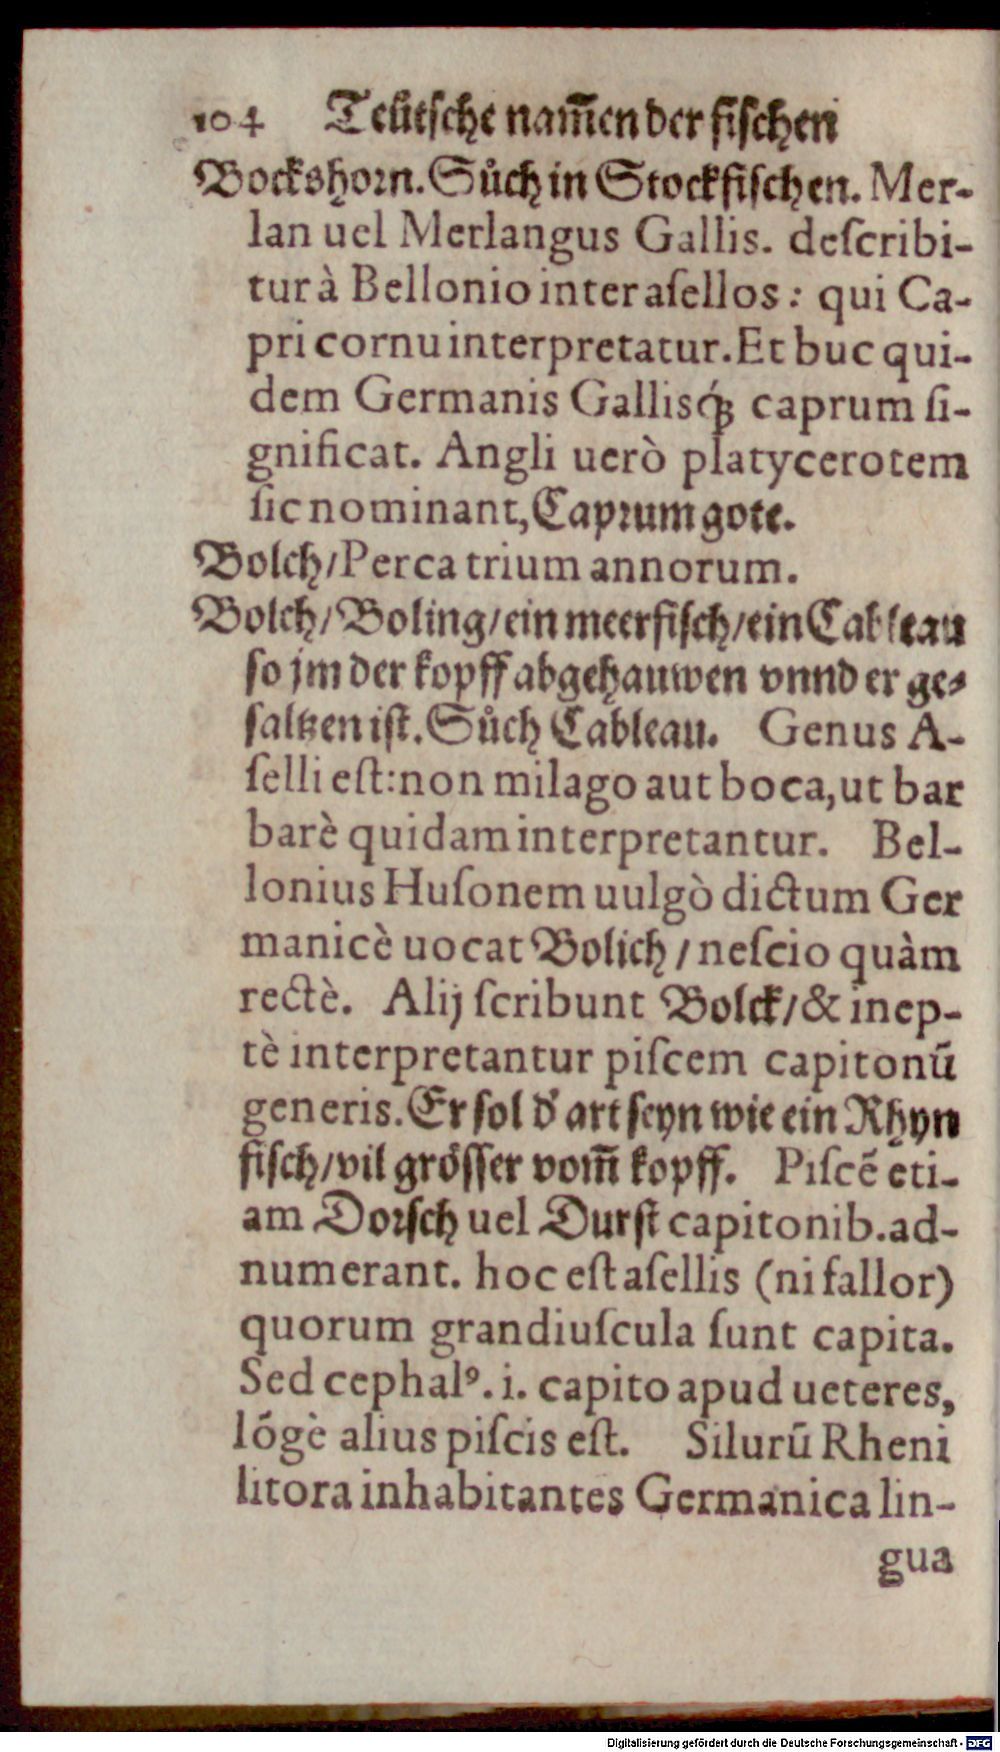 104 Teütsche nam̃en der fischen
Bockshorn. Sůch in Stockfischen. Mer-
lan uel Merlangus Gallis. deſcribi-
tur à Bellonio inter aſellos: qui Ca-
pri cornu interpretatur. Et buc qui-
dem Germanis Gallisq́ꝫ caprum ſi-
gnificat. Angli uerò platycerotem
ſic nominant, Caprum gote.
Bolch/ Perca trium annorum.
Bolch/ Boling/ ein meerfiſch/ ein Cableau
ſo jm der kopff abgehauwen vnnd er ge-
ſaltzen iſt. Sůch Cableau. Genus A-
ſelli eſt: non milago aut boca, ut bar
barè quidam interpretantur. Bel-
lonius Huſonem uulgò dictum Ger
manicè uocat Bolich/ neſcio quàm
rectè. Alij ſcribunt Bolck/ & inep-
tè interpretantur piſcem capitonū
generis. Er ſol d' art ſeyn wie ein Rhyn
fiſch/ vil gröſſer vom̃ kopff. Piſcē eti-
am Dorſch uel Durſt capitonib. ad-
numerant. hoc eſt aſellis (ni fallor)
quorum grandiuſcula ſunt capita.
Sed cephalꝰ. i. capito apud ueteres,
lōgè alius piſcis eſt. Silurū Rheni
litora inhabitantes Germanica lin-
gua
Digitalisierung gefördert durch die Deutsche Forschungsgemeinschaft - DFG